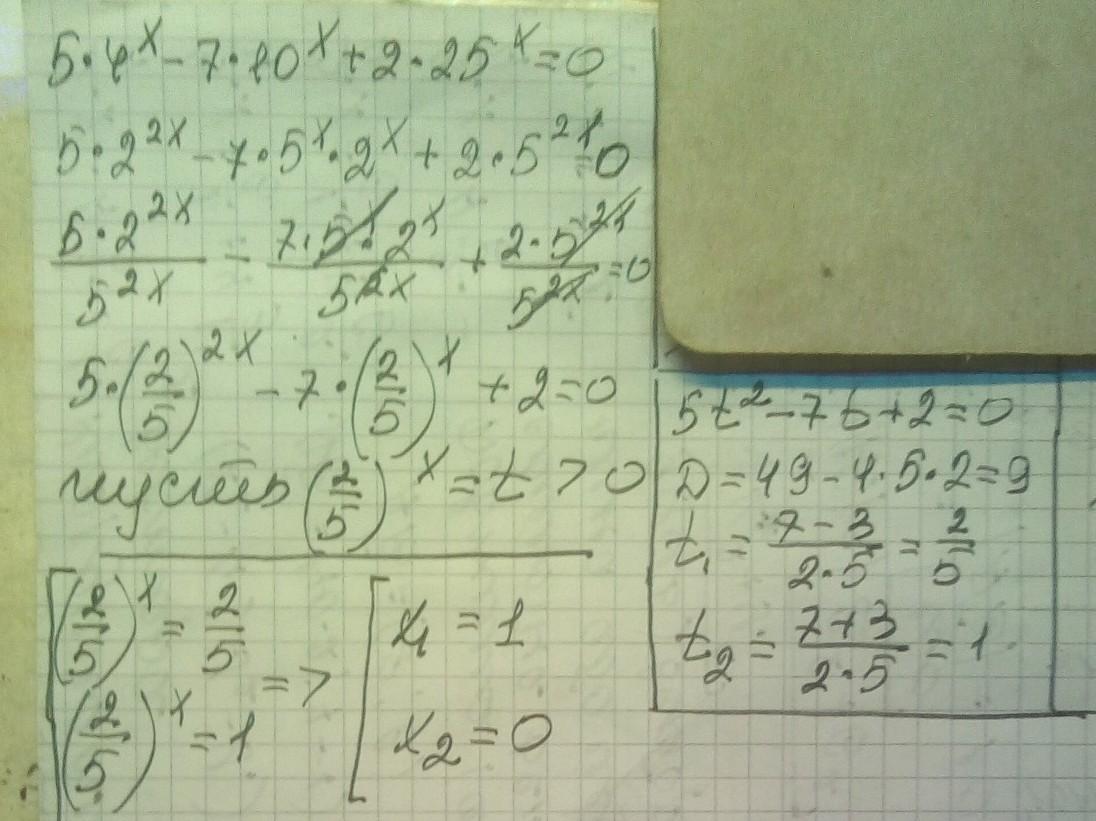 5·4^x - 7·10^x + 2·25^x = 0
5·2^{2x} - 7·5^x·2^x + 2·5^{2x} = 0
\frac{5·2^{2x}}{5^{2x}} - \frac{7·5^x·2^x}{5^{2x}} + \frac{2·5^{2x}}{5^{2x}} = 0
5·(\frac{2}{5})^{2x} - 7·(\frac{2}{5})^x + 2 = 0
пусть (\frac{2}{5})^x = t > 0
5t^2 - 7t + 2 = 0
D = 49 - 4·5·2 = 9
t_1 = \frac{7-3}{2·5} = \frac{2}{5}
t_2 = \frac{7+3}{2·5} = 1
[(\frac{2}{5})^x = \frac{2}{5}
(\frac{2}{5})^x = 1
=>
[x_1 = 1
x_2 = 0